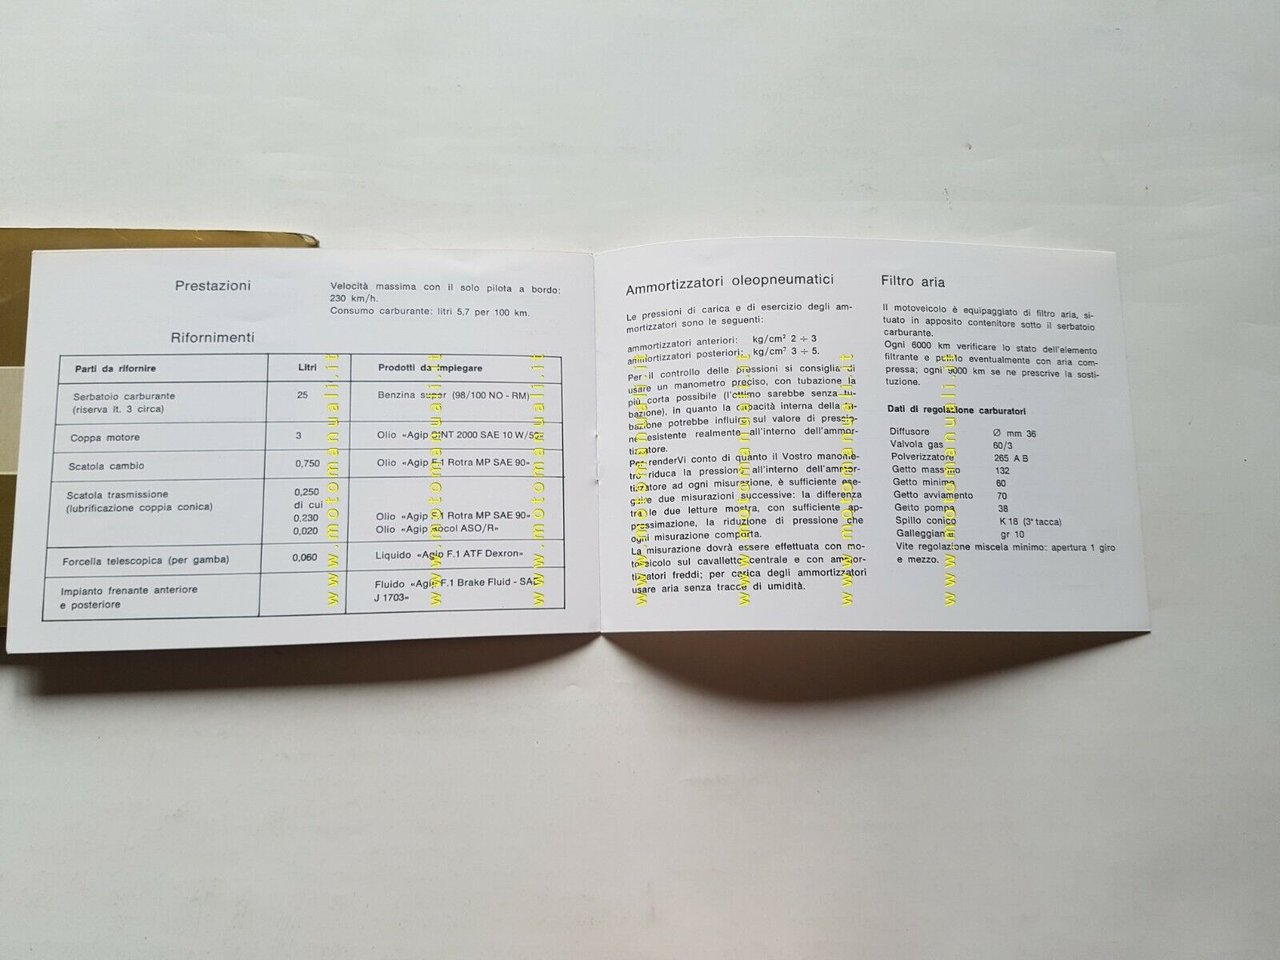 Prestazioni
Velocità massima con il solo pilota a bordo:
230 km/h.
Consumo carburante: litri 5,7 per 100 km.
Rifornimenti
Parti da rifornire Litri Prodotti da impiegare
Serbatoio carburante 25 Benzina super (98/100 NO - RM)
(riserva lt. 3 circa)
Coppa motore 3 Olio «Agip SINT 2000 SAE 10 W/50»
Scatola cambio 0,750 Olio «Agip F.1 Rotra MP SAE 90»
Scatola trasmissione 0,250
(lubrificazione coppia conica) di cui
0,230 Olio «Agip F.1 Rotra MP SAE 90»
0,020 Olio «Agip Rocol ASO/R»
Forcella telescopica (per gamba) 0,060 Liquido «Agip F.1 ATF Dexron»
Impianto frenante anteriore Fluido «Agip F.1 Brake Fluid - SAE
e posteriore J 1703»
Ammortizzatori oleopneumatici
Le pressioni di carica e di esercizio degli am-
mortizzatori sono le seguenti:
ammortizzatori anteriori: kg/cm² 2 ÷ 3
ammortizzatori posteriori: kg/cm² 3 ÷ 5.
Per il controllo delle pressioni si consiglia di
usare un manometro preciso, con tubazione la
più corta possibile (l'ottimo sarebbe senza tu-
bazione), in quanto la capacità interna della tu-
bazione potrebbe influire sul valore di pressio-
ne esistente realmente all'interno dell'ammor-
tizzatore.
Per renderVi conto di quanto il Vostro manome-
tro riduca la pressione all'interno dell'ammor-
tizzatore ad ogni misurazione, è sufficiente ese-
guire due misurazioni successive: la differenza
tra le due letture mostra, con sufficiente ap-
prossimazione, la riduzione di pressione che
ogni misurazione comporta.
La misurazione dovrà essere effettuata con mo-
toveicolo sul cavalletto centrale e con ammor-
tizzatori freddi; per carica degli ammortizzatori
usare aria senza tracce di umidità.
Filtro aria
Il motoveicolo è equipaggiato di filtro aria, si-
tuato in apposito contenitore sotto il serbatoio
carburante.
Ogni 6000 km verificare lo stato dell'elemento
filtrante e pulirlo eventualmente con aria com-
pressa; ogni 9000 km se ne prescrive la sosti-
tuzione.
Dati di regolazione carburatori
Diffusore Ø mm 36
Valvola gas 60/3
Polverizzatore 265 AB
Getto massimo 132
Getto minimo 60
Getto avviamento 70
Getto pompa 38
Spillo conico K 18 (3ª tacca)
Galleggiante gr 10
Vite regolazione miscela minimo: apertura 1 giro
e mezzo.
www.motomanuali.it
www.motomanuali.it
www.motomanuali.it
www.motomanuali.it
www.motomanuali.it
www.motomanuali.it
www.motomanuali.it